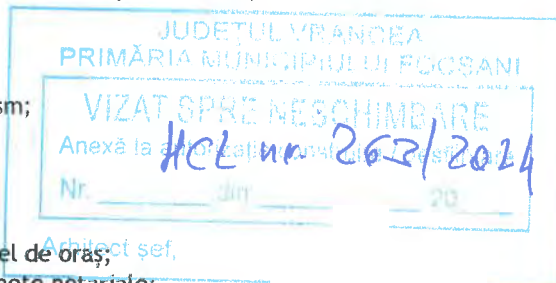 JUDEȚUL VRANCEA
PRIMĂRIA MUNICIPIULUI FOCȘANI
sm;
VIZAT SPRE NESCHIMBARE
Anexă la
HCL nr. 263/2024
Nr. din 20
Arhitect șef,
el de oraș;
notariale;